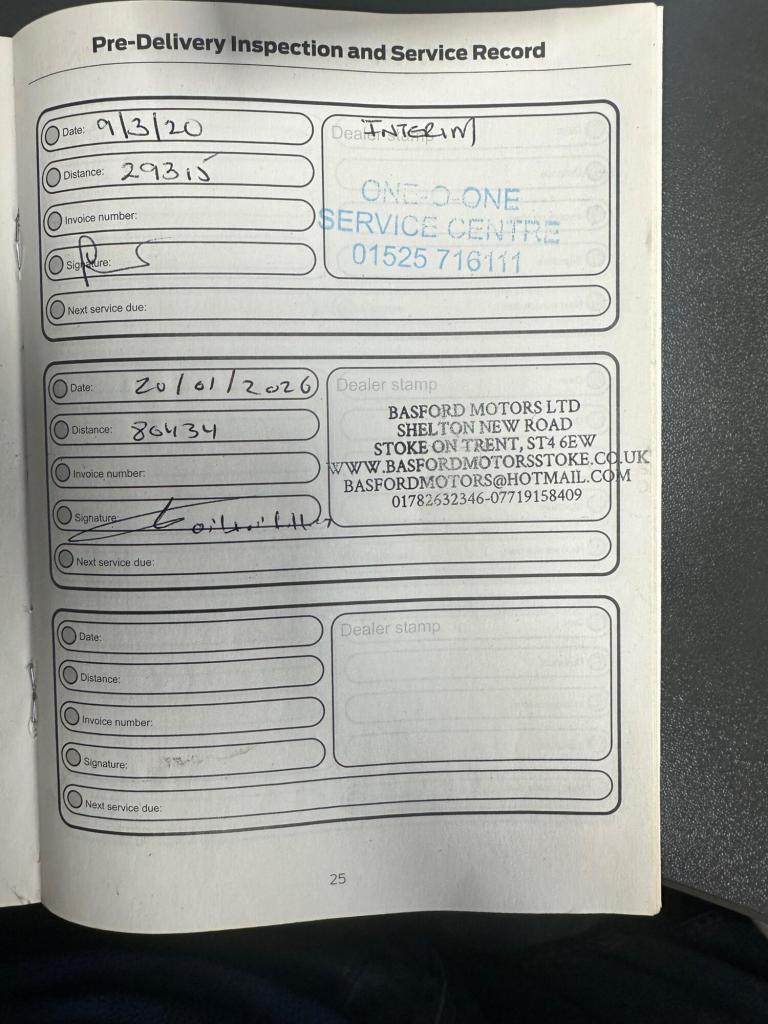 Pre-Delivery Inspection and Service Record
Date: 9/3/20
Distance: 29315
Invoice number:
Signature:
Next service due:
Dealer stamp
INTERIM
ONE-O-ONE
SERVICE CENTRE
01525 716111
Date: 20/01/2026
Distance: 80434
Invoice number:
Signature:
Next service due:
Dealer stamp
BASFORD MOTORS LTD
SHELTON NEW ROAD
STOKE ON TRENT, ST4 6EW
WWW.BASFORDMOTORSSTOKE.CO.UK
BASFORDMOTORS@HOTMAIL.COM
01782632346-07719158409
Date:
Distance:
Invoice number:
Signature:
Next service due:
Dealer stamp
25